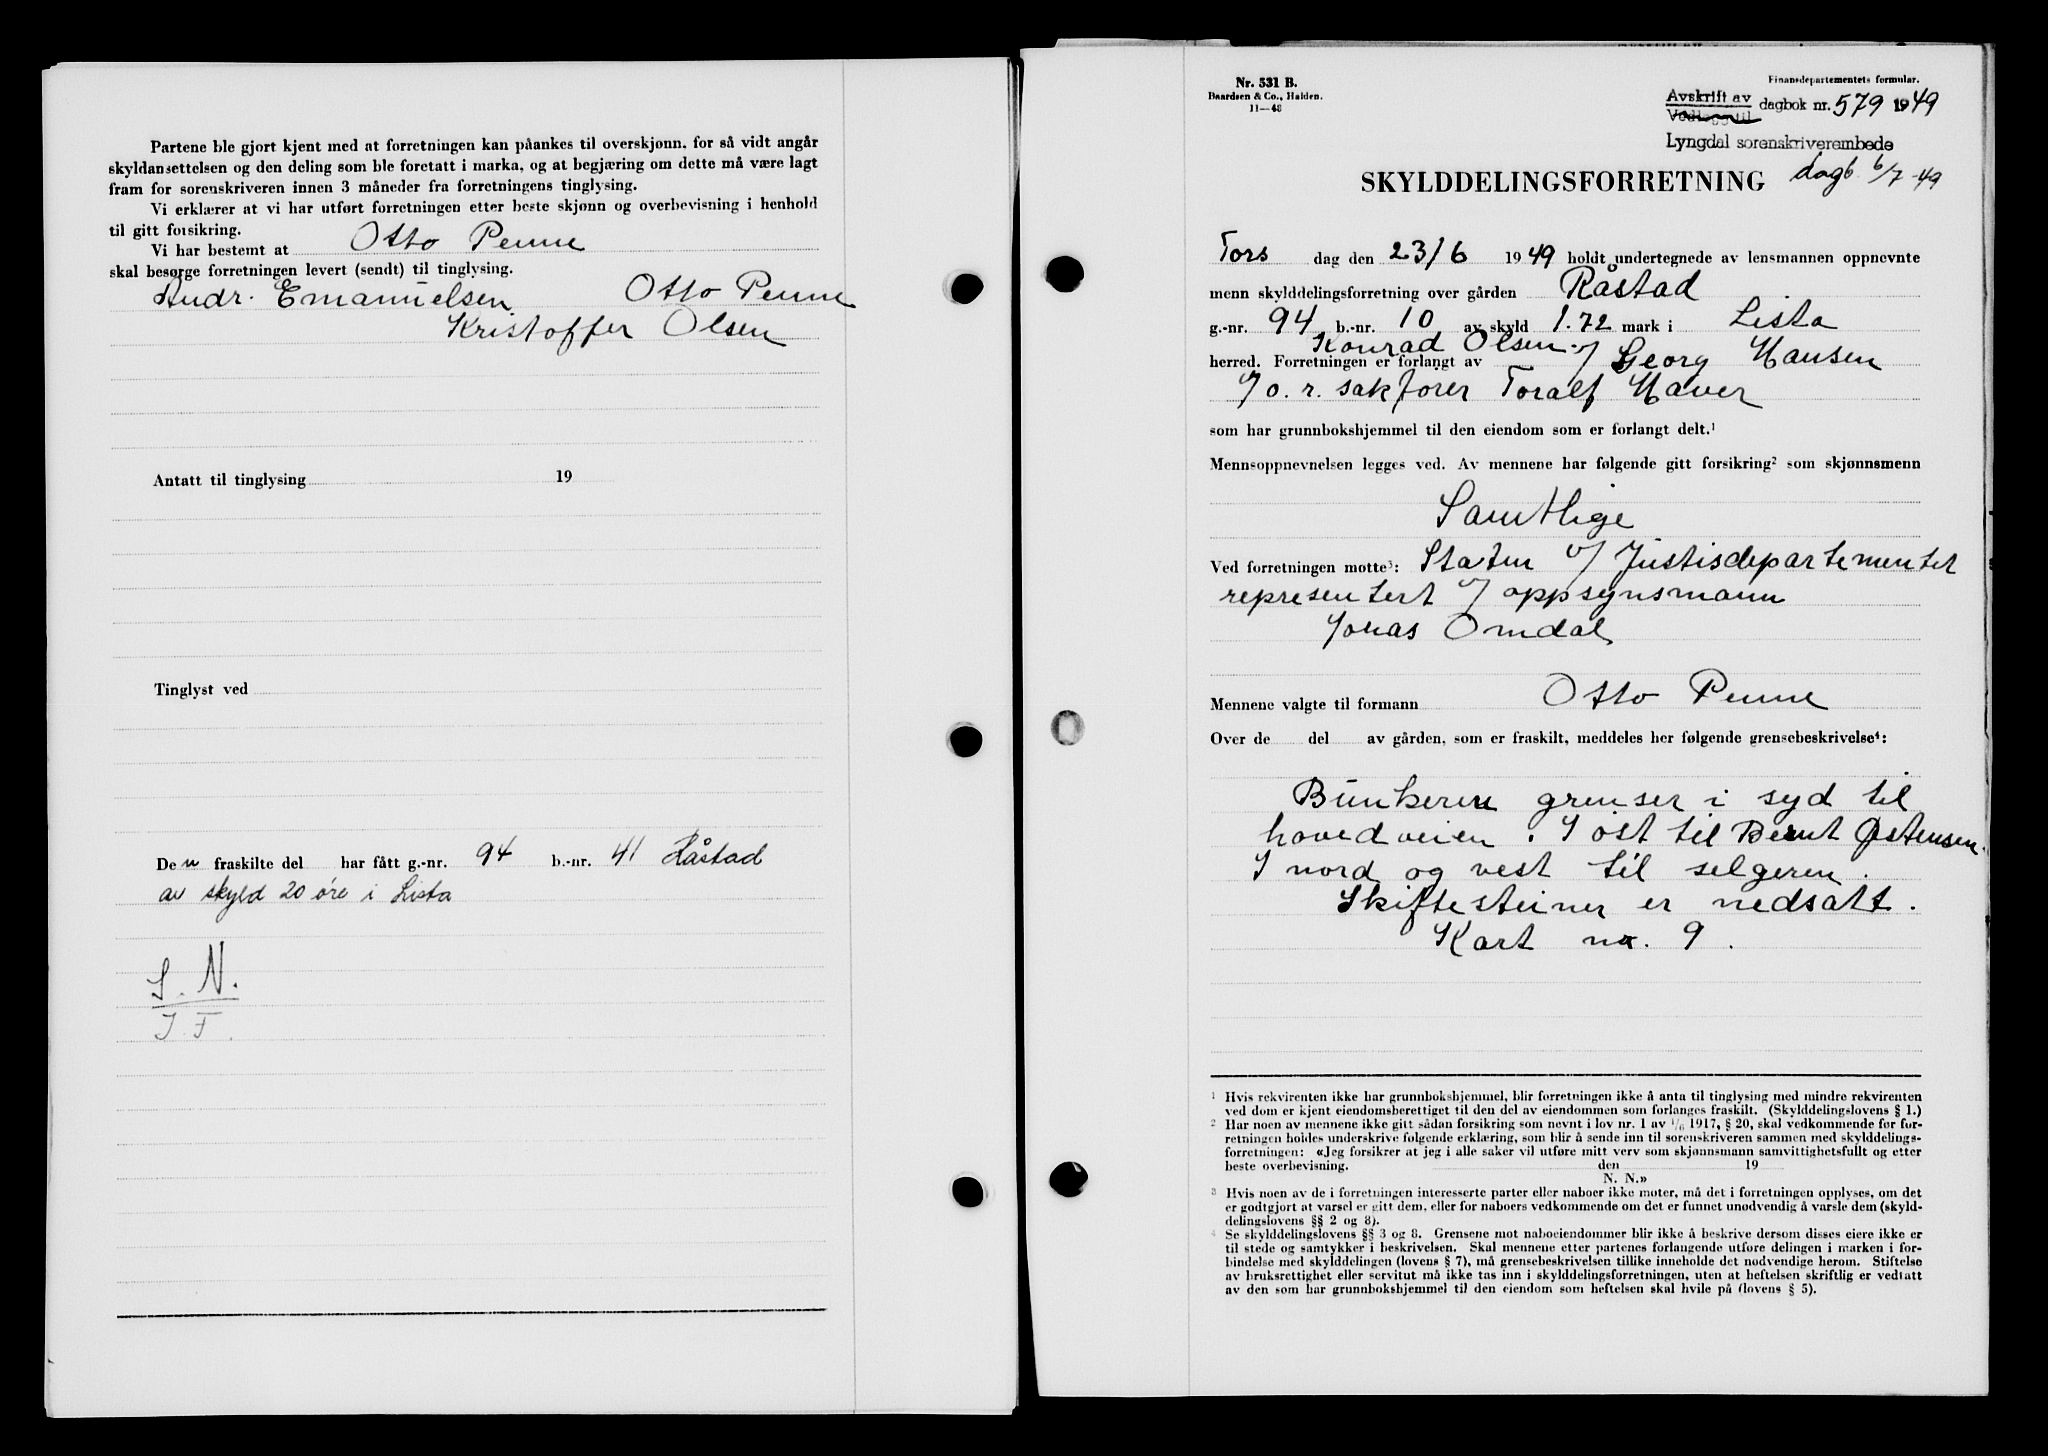 Partene ble gjort kjent med at forretningen kan påankes til overskjønn, for så vidt angår
skyldansettelsen og den deling som ble foretatt i marka, og at begjæring om dette må være lagt
fram for sorenskriveren innen 3 måneder fra forretningens tinglysing.
Vi erklærer at vi har utført forretningen etter beste skjønn og overbevisning i henhold
til gitt forsikring.
Vi har bestemt at Otto Penne
skal besørge forretningen levert (sendt) til tinglysing.
Andr. Emanuelsen Otto Penne
Kristoffer Olsen
Antatt til tinglysing 19
Tinglyst ved
De n fraskilte del har fått g.-nr. 94 b.-nr. 41 Råstad
av skyld 20 øre i Lista
S. N.
J. F.
Nr. 531 B.
Baardsen & Co., Halden.
11—48
Finansdepartementets formular.
Avskrift av
Vedlegg til
dagbok nr. 579 1949
Lyngdal sorenskriverembede
dagb. 6/7-49
SKYLDDELINGSFORRETNING
Tors dag den 23/6 1949 holdt undertegnede av lensmannen oppnevnte
menn skylddelingsforretning over gården Råstad
g.-nr. 94 b.-nr. 10 av skyld 1.72 mark i Lista
herred. Forretningen er forlangt av Konrad Olsen v/ Georg Hansen
v/ o. r. sakfører Toralf Haver
som har grunnbokshjemmel til den eiendom som er forlangt delt.¹
Mennsoppnevnelsen legges ved. Av mennene har følgende gitt forsikring² som skjønnsmenn
Samtlige
Ved forretningen møtte³: Staten v/ Justisdepartementet
representert v/ oppsynsmann
Jonas Omdal
Mennene valgte til formann Otto Penne
Over de del av gården, som er fraskilt, meddeles her følgende grensebeskrivelse⁴:
Bunkeren grenser i syd til
hovedveien. I øst til Bernt Østensen.
I nord og vest til selgeren.
Skiftesteiner er nedsatt.
Kart nr. 9.
¹ Hvis rekvirenten ikke har grunnbokshjemmel, blir forretningen ikke å anta til tinglysing med mindre rekvirenten
ved dom er kjent eiendomsberettiget til den del av eiendommen som forlanges fraskilt. (Skylddelingslovens § 1.)
² Har noen av mennene ikke gitt sådan forsikring som nevnt i lov nr. 1 av 1/6 1917, § 20, skal vedkommende før for-
retningen holdes underskrive følgende erklæring, som blir å sende inn til sorenskriveren sammen med skylddelings-
forretningen: «Jeg forsikrer at jeg i alle saker vil utføre mitt verv som skjønnsmann samvittighetsfullt og etter
beste overbevisning. den 19
N. N.»
³ Hvis noen av de i forretningen interesserte parter eller naboer ikke møter, må det i forretningen opplyses, om det
er godtgjort at varsel er gitt dem, eller for naboers vedkommende om det er funnet unødvendig å varsle dem (skyld-
delingslovens §§ 2 og 8).
⁴ Se skylddelingslovens §§ 3 og 8. Grensene mot naboeiendommer blir ikke å beskrive dersom disses eiere ikke er
til stede og samtykker i beskrivelsen. Skal mennene etter partenes forlangende utføre delingen i marken i for-
bindelse med skylddelingen (lovens § 7), må grensebeskrivelsen tillike inneholde det nødvendige herom. Stiftelse
av bruksrettighet eller servitut må ikke tas inn i skylddelingsforretningen, uten at heftelsen skriftlig er vedtatt
av den som har grunnbokshjemmel til den eiendom som heftelsen skal hvile på (lovens § 5).